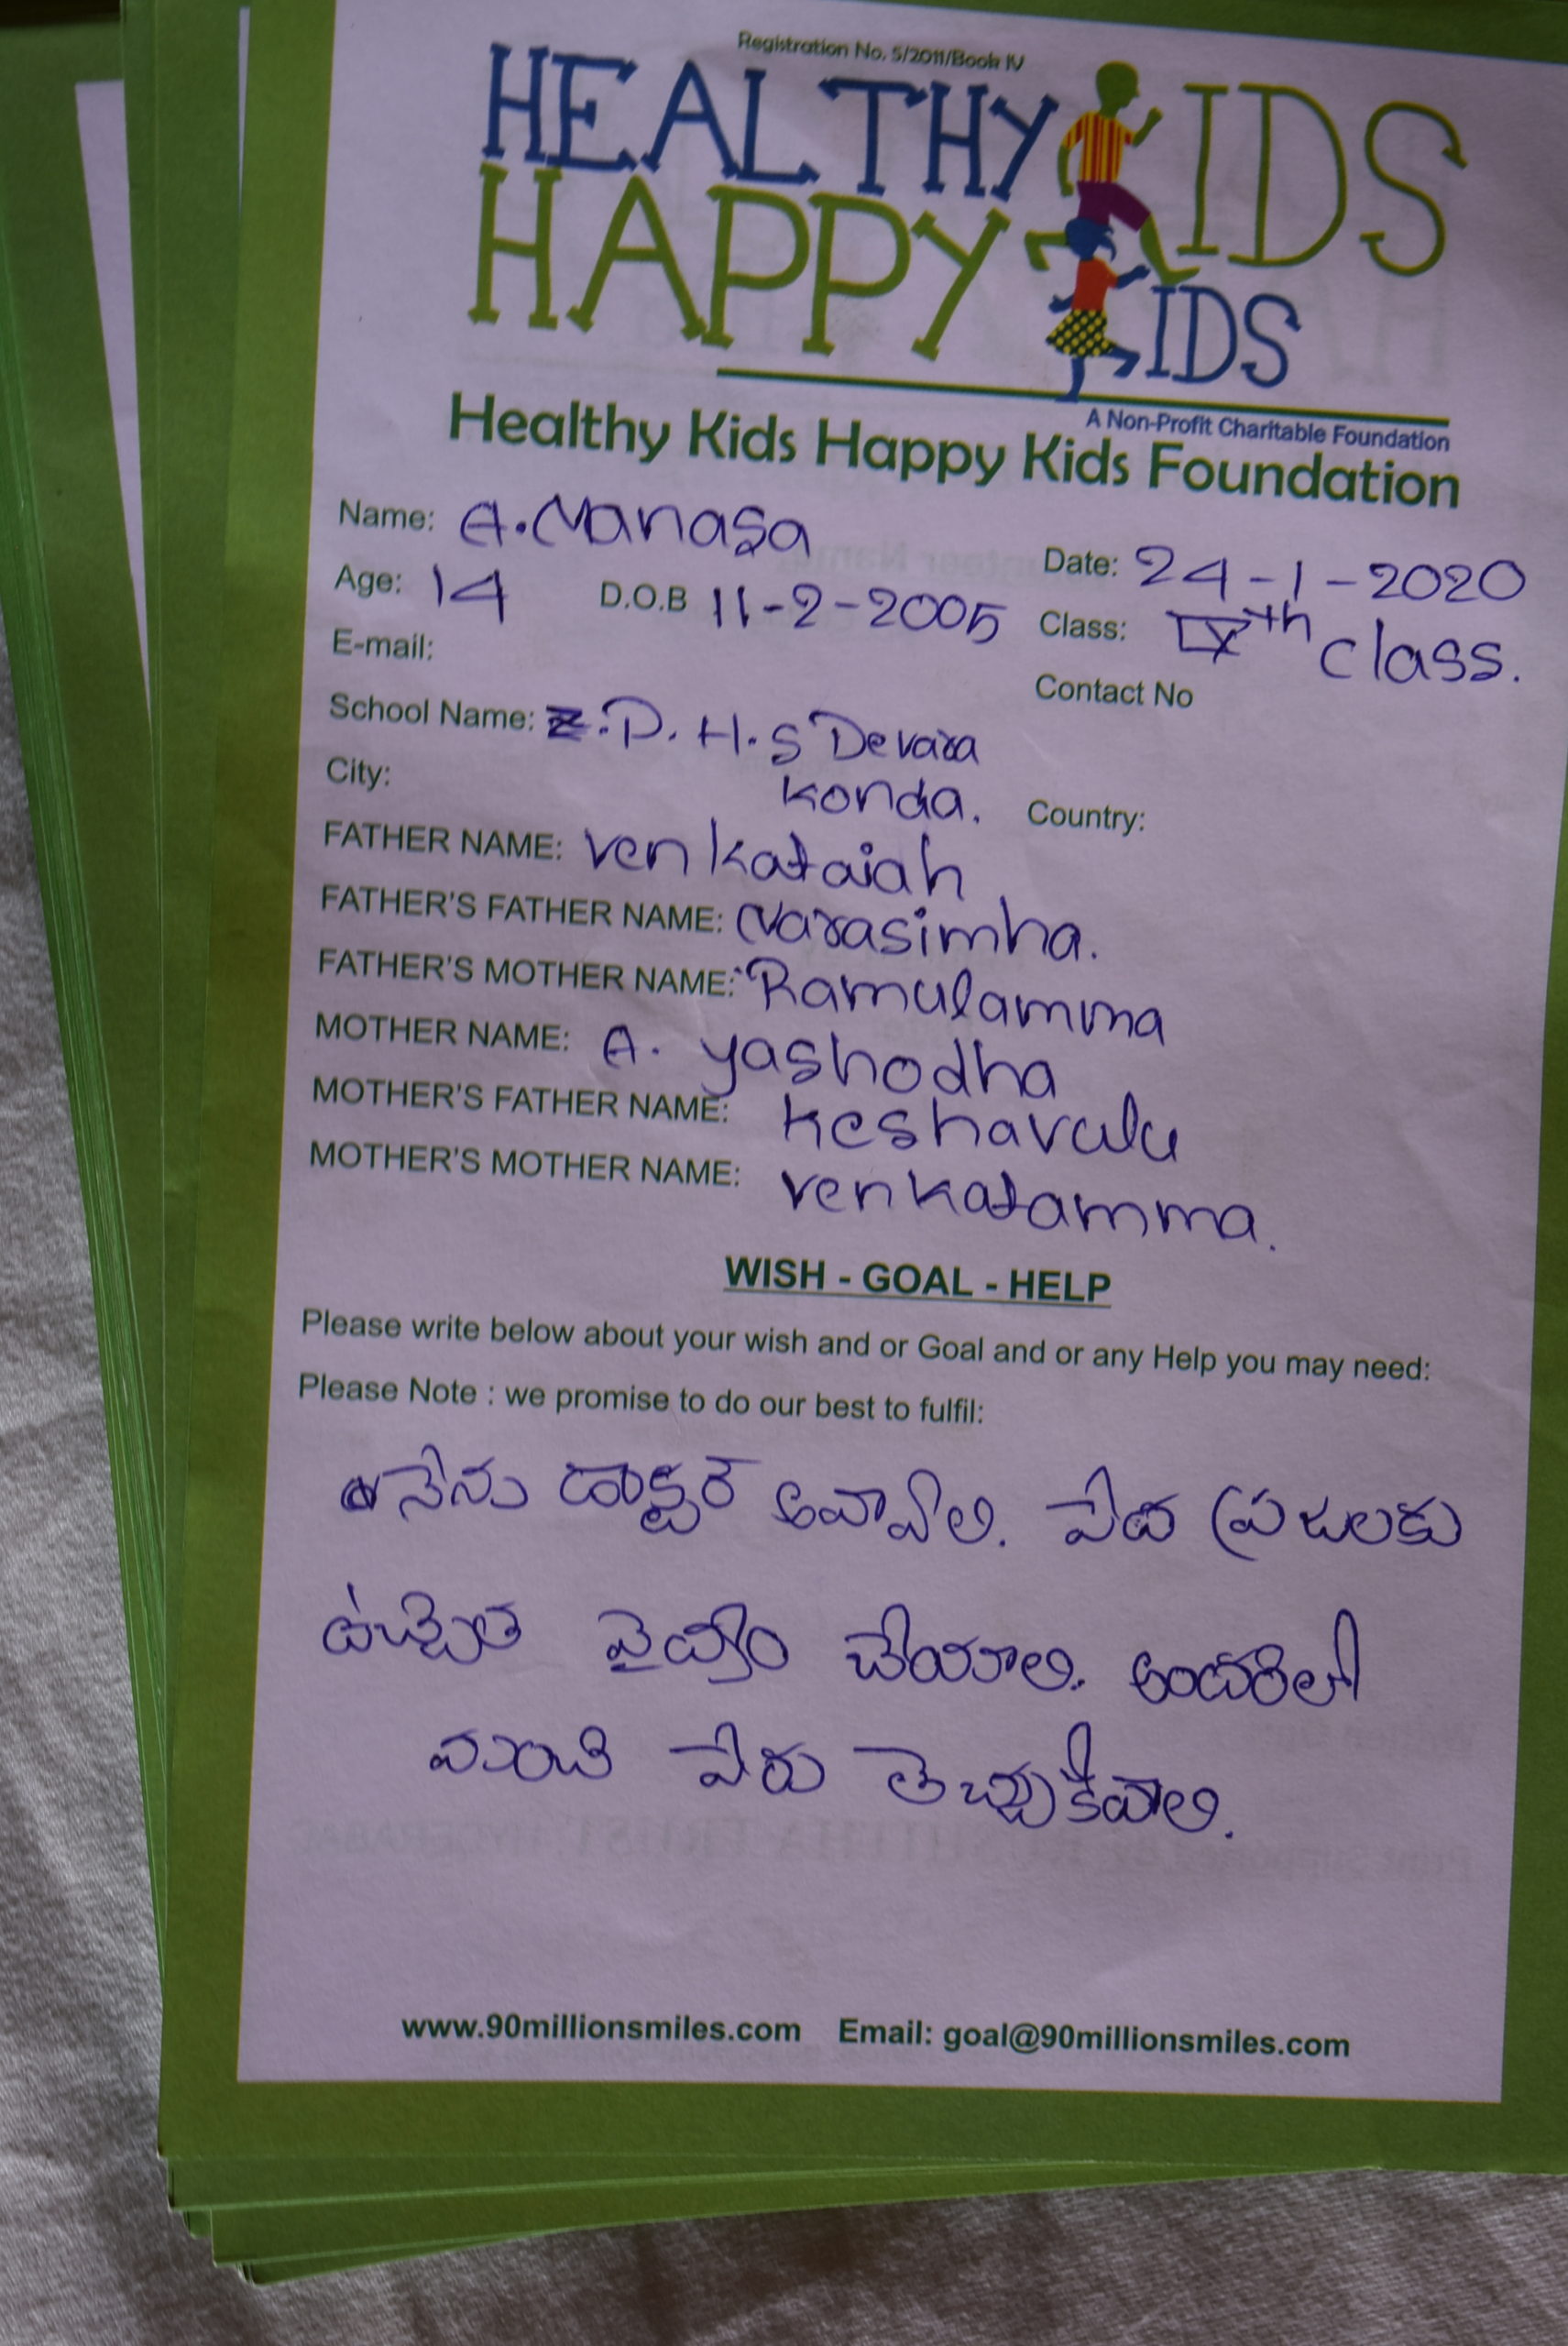 Registration No. 5/2011/Book IV
HEALTHY KIDS
HAPPY KIDS
A Non-Profit Charitable Foundation
Healthy Kids Happy Kids Foundation
Name: A. Manasa
Date: 24-1-2020
Age: 14 D.O.B 11-2-2005 Class: IXth class.
E-mail:
Contact No
School Name: Z.P.H.S Devara
konda.
City: Country:
FATHER NAME: venkataiah
FATHER'S FATHER NAME: Narasimha.
FATHER'S MOTHER NAME: Ramulamma
MOTHER NAME: A. yashodha
MOTHER'S FATHER NAME: keshavulu
MOTHER'S MOTHER NAME: venkatamma.
WISH - GOAL - HELP
Please write below about your wish and or Goal and or any Help you may need:
Please Note : we promise to do our best to fulfil:
నేను డాక్టర్ అవ్వాలి. పేద ప్రజలకు
ఉచ్చిత వైద్యం చేయాలి. అందరిలో
మంచి పేరు తెచ్చుకోవాలి.
www.90millionsmiles.com Email: goal@90millionsmiles.com